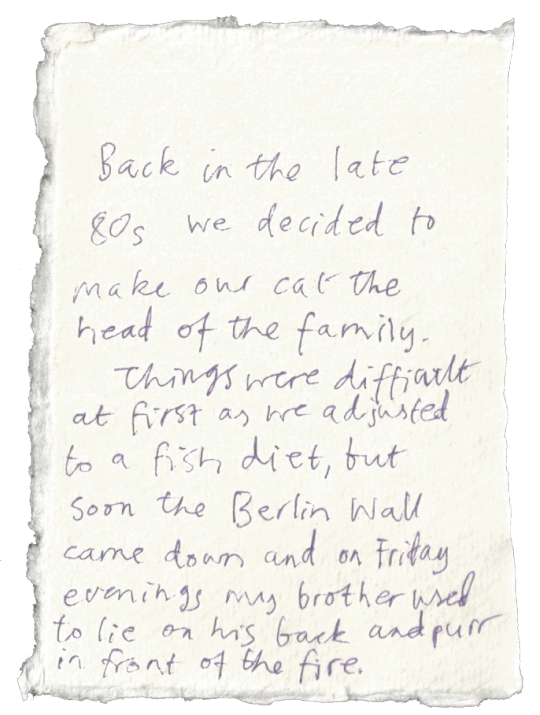 Back in the late
80s we decided to
make our cat the
head of the family.
Things were difficult
at first as we adjusted
to a fish diet, but
soon the Berlin Wall
came down and on Friday
evenings my brother used
to lie on his back and purr
in front of the fire.